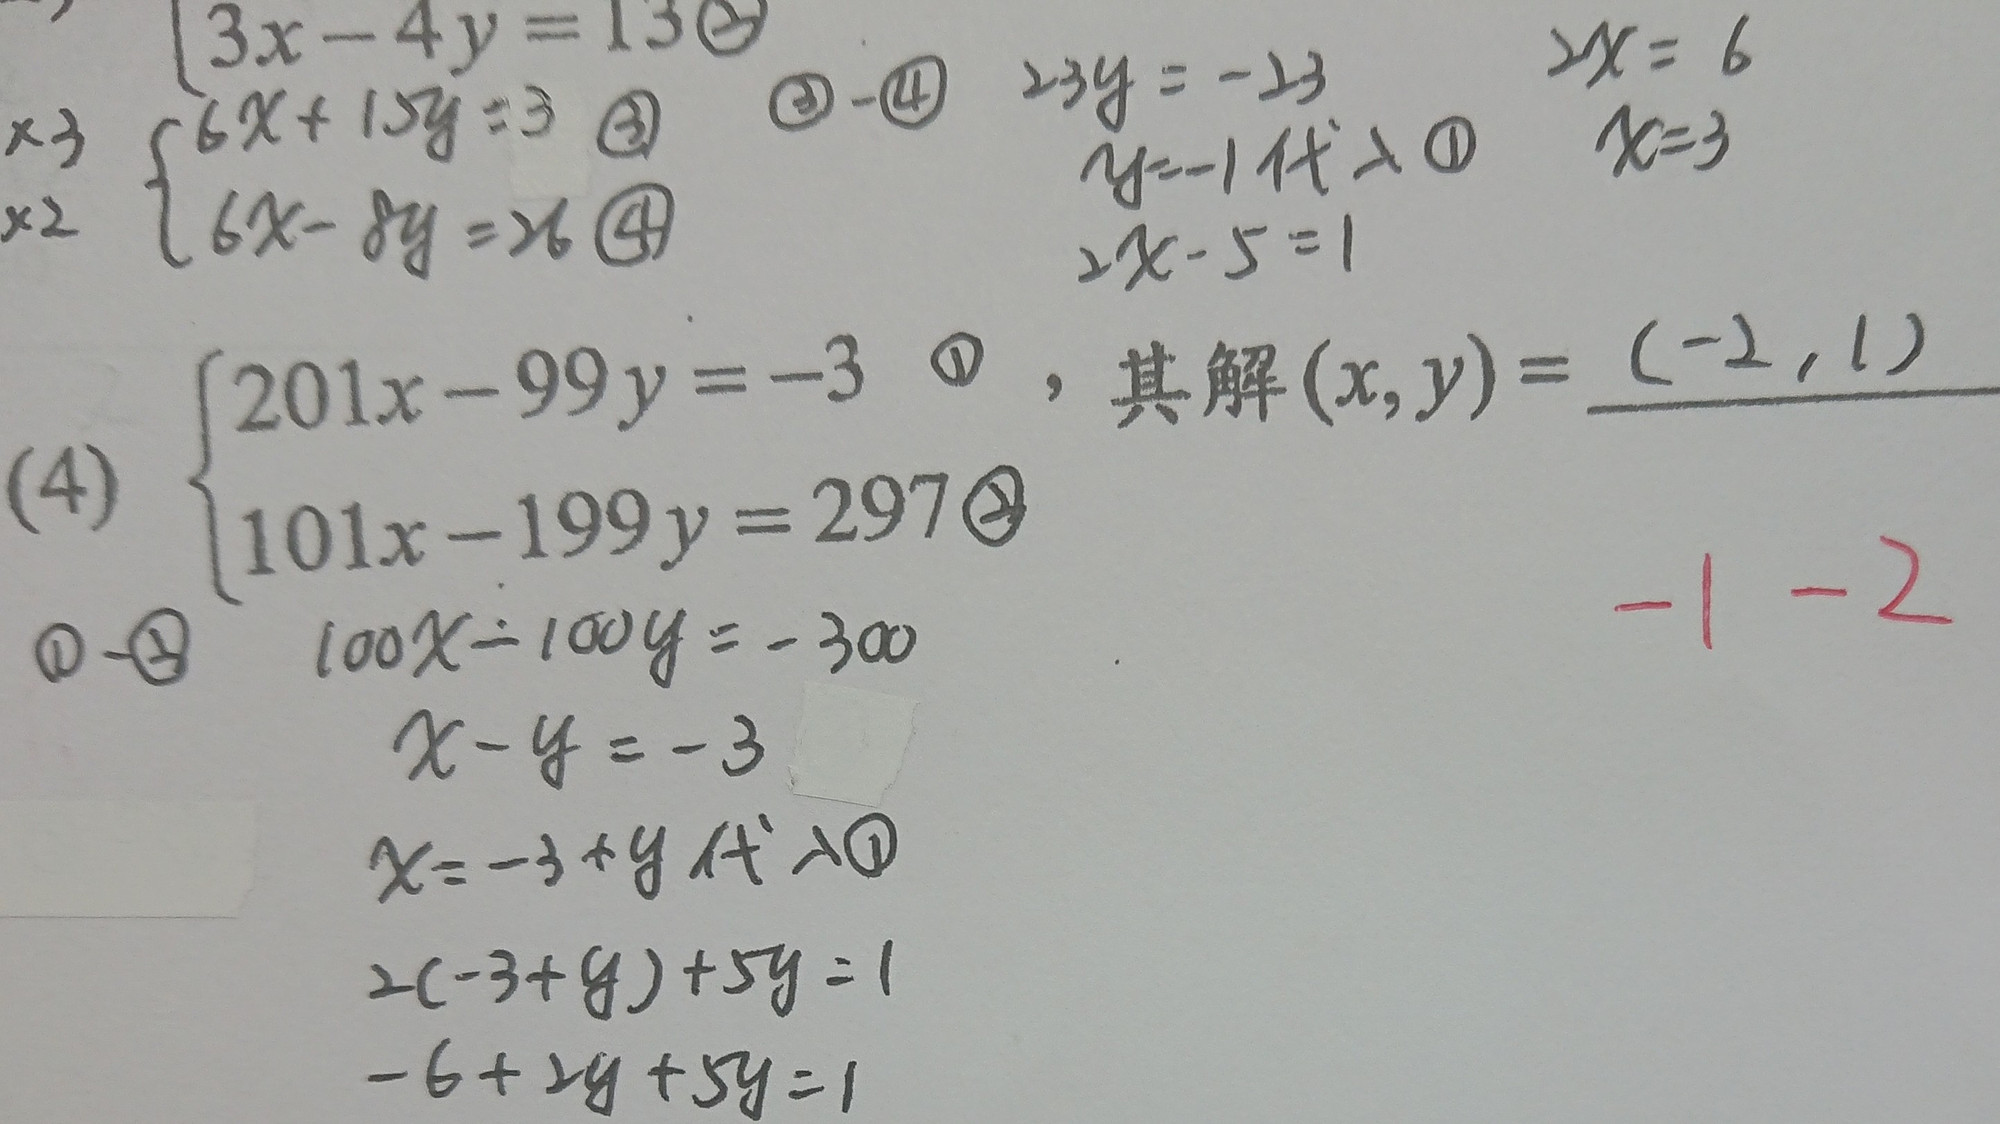 3x－4y＝13②
×3 6x+15y=3 ③ ③-④ 23y=-23 2x=6
y=-1代入① x=3
×2 6x-8y=26④
2x-5=1
201x－99y＝－3 ①，其解(x, y)＝(-2,1)
(4)
101x－199y＝297②
-1 -2
①-② 100x-100y=-300
x-y=-3
x=-3+y代入①
2(-3+y)+5y=1
-6+2y+5y=1